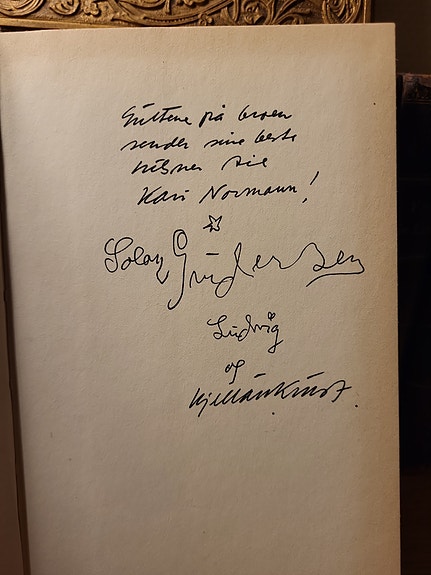 Guttene på broen
sender sine beste
hilsner til
Kari Normann!
Solan Gundersen
Ludvig
og
Kjell Aukrust.